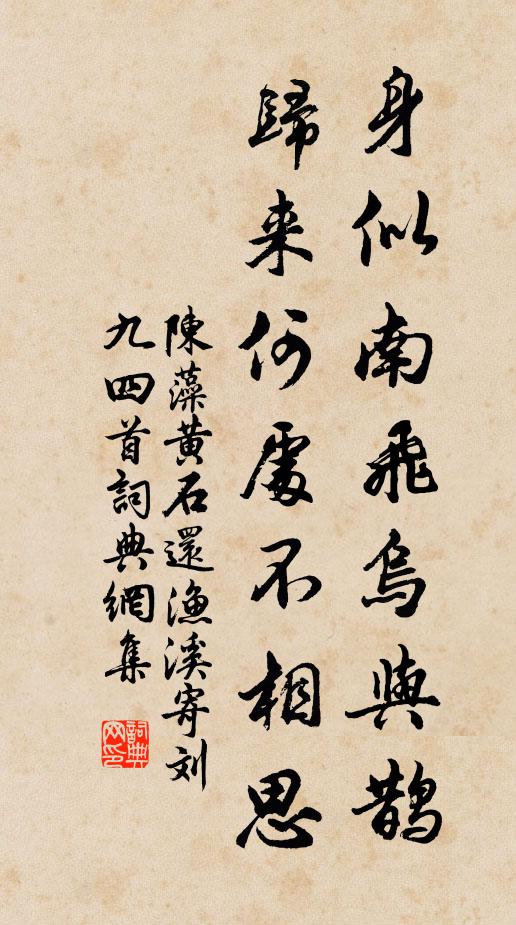 身似南飛烏與鵲
歸来何處不相思
陳藻黄石還漁溪寄刘
九四首詞典網集
詞典网印